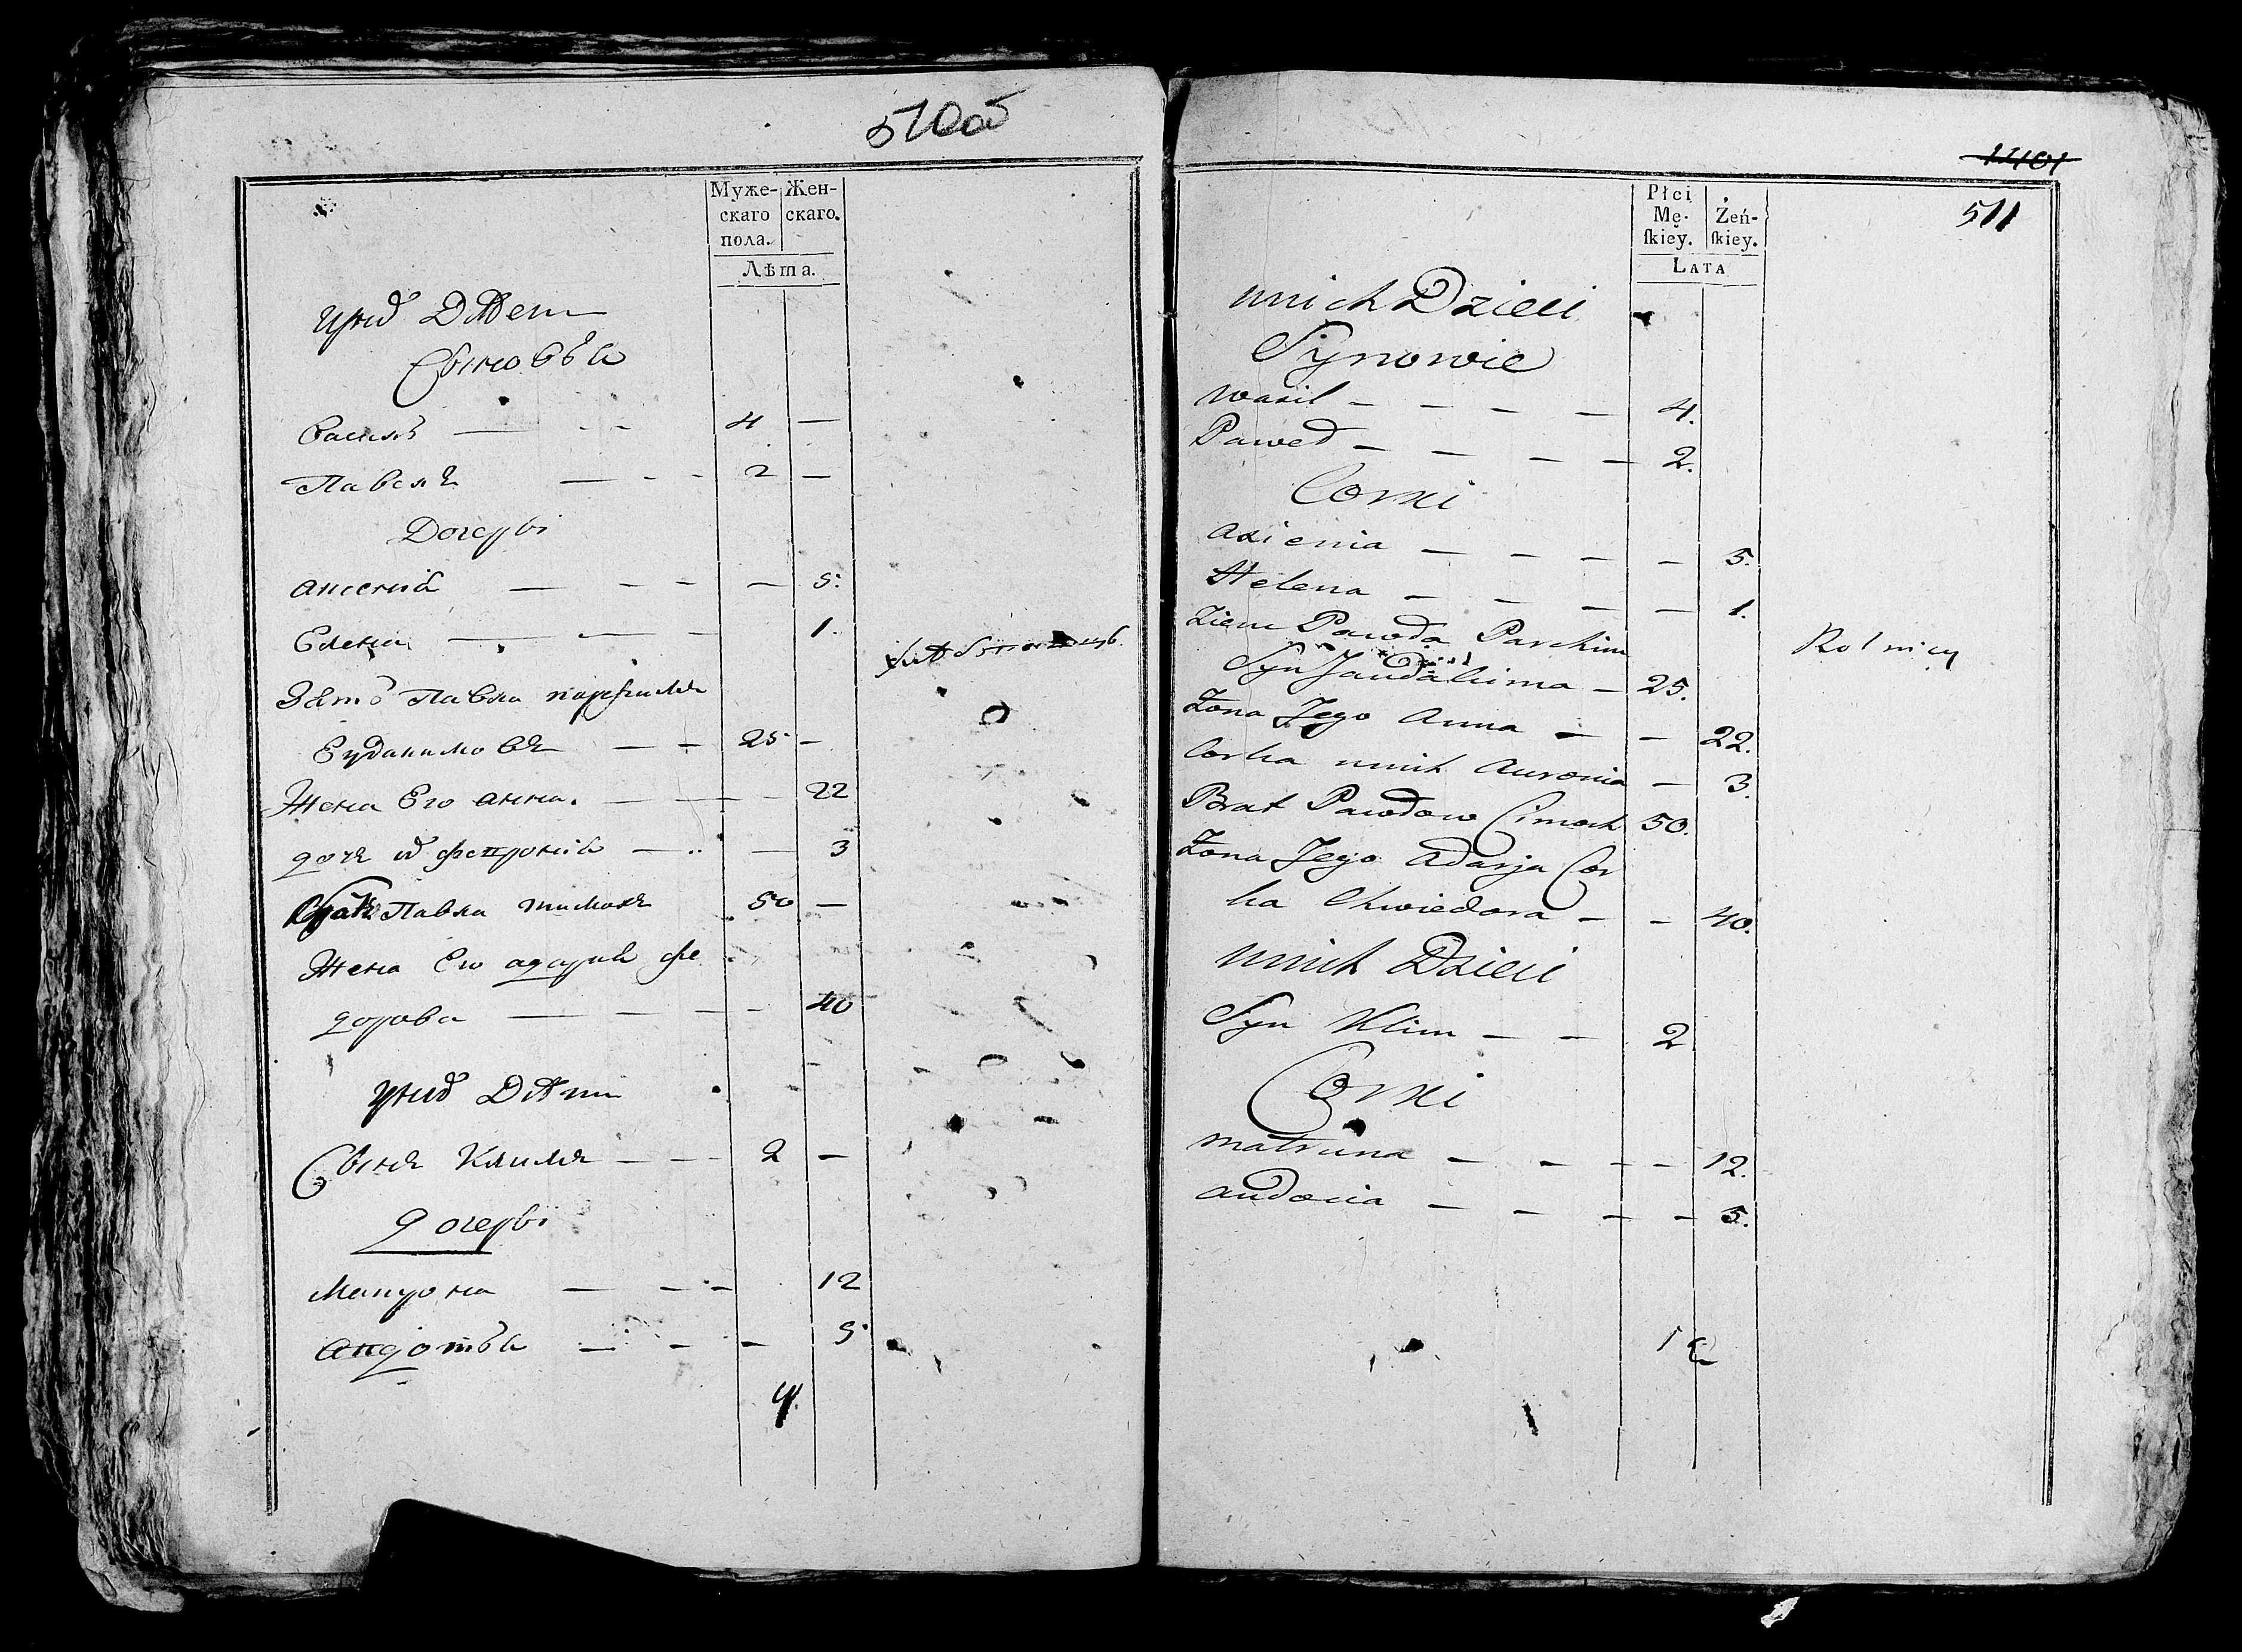 510об
Муже-
скаго
пола.
Жен-
скаго.
Лѣта.
унихъ Дѣти
Сыновья
Василь — - - 4 —
Павелъ — - - 2 —
Дочери
аксенія — - - — 5.
Елена — — - 1.
Зять Павла пархимъ
Евдакимовъ — - 25 -
Жена Его анна. — — - 22
дочь ихъ февронія — .. — 3
Братъ Павла тимохъ 50 —
Жена Его адарія фе
дорова — — - - 40
унихъ Дѣти
Сынъ Климъ — - - 2 —
дочери
Матрона — - - 12
авдотья — - - - 5
4.
1401
511
Płci
Mę-
ſkiey.
Żeń-
ſkiey.
LATA
unich Dzieci
Synowie
wasil - - - - 4.
Paweł - - - - 2.
Corki
axienia - - - - 5.
Helena - - - - 1.
Zienc Pawła Parchim
Syn Jaudakima - 25.
Rolnicy
Żona Jego anna - - 22.
Corka unich auronia - 3.
Brat Pawłow Cimoch 50.
Żona Jego adarja Cor
ka Chwiedora - - 40.
unich Dzieci
Syn Klim - - 2
Corki
matruna - - - - 12.
audocia - - - - 5.